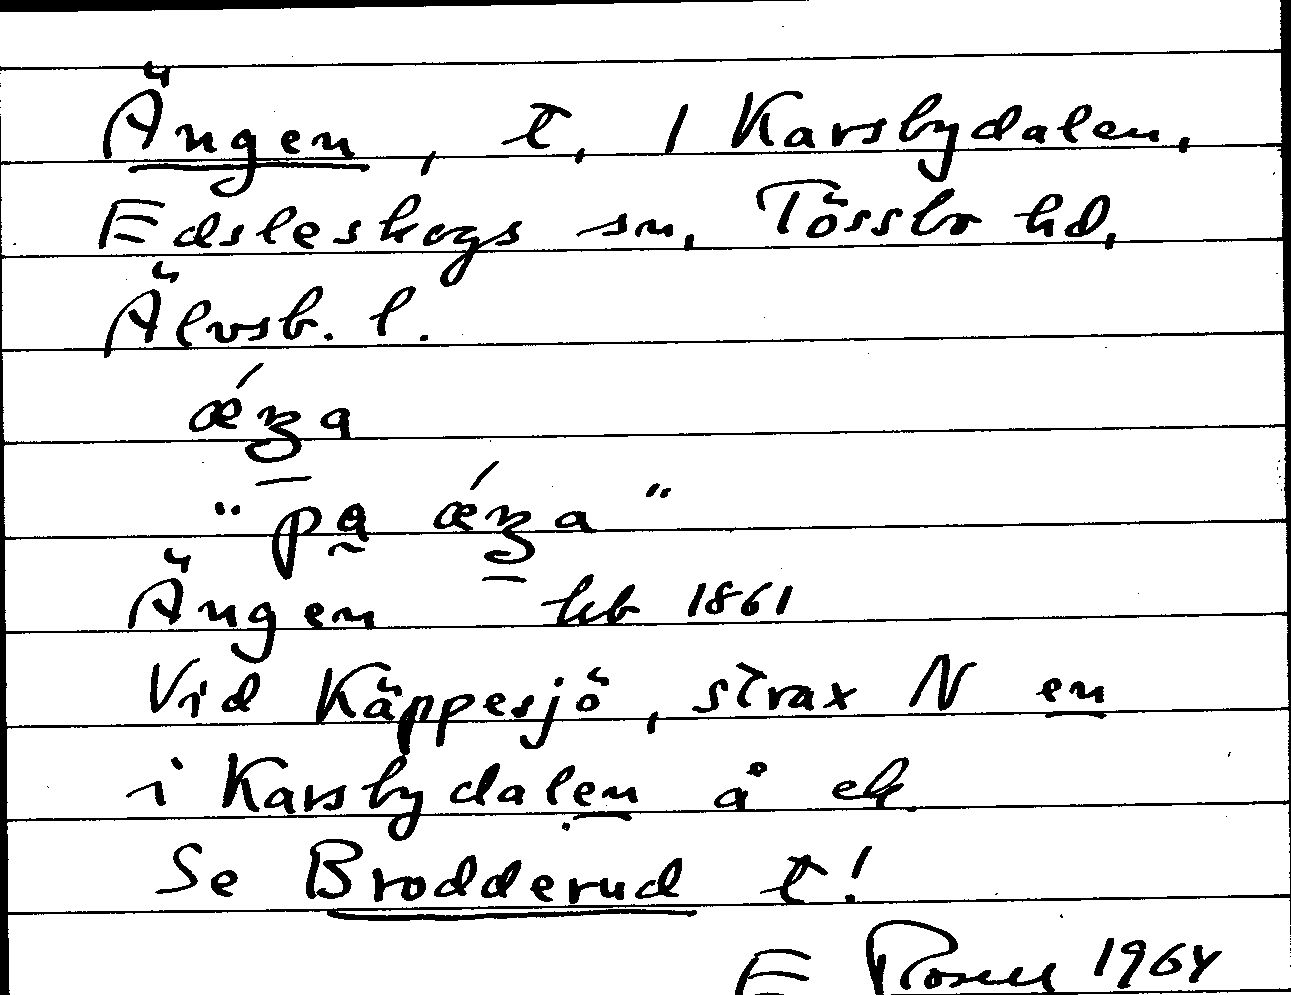 Ängen, t, 1 Karsbydalen,
Edsleskogs sn, Tössbo hd,
Älvsb. l.
ǽŋa
"på ǽŋa"
Ängen hb 1861
Vid Käppesjö, strax N en
i Karsbydalen å ek.
Se Brodderud t!
E 1964